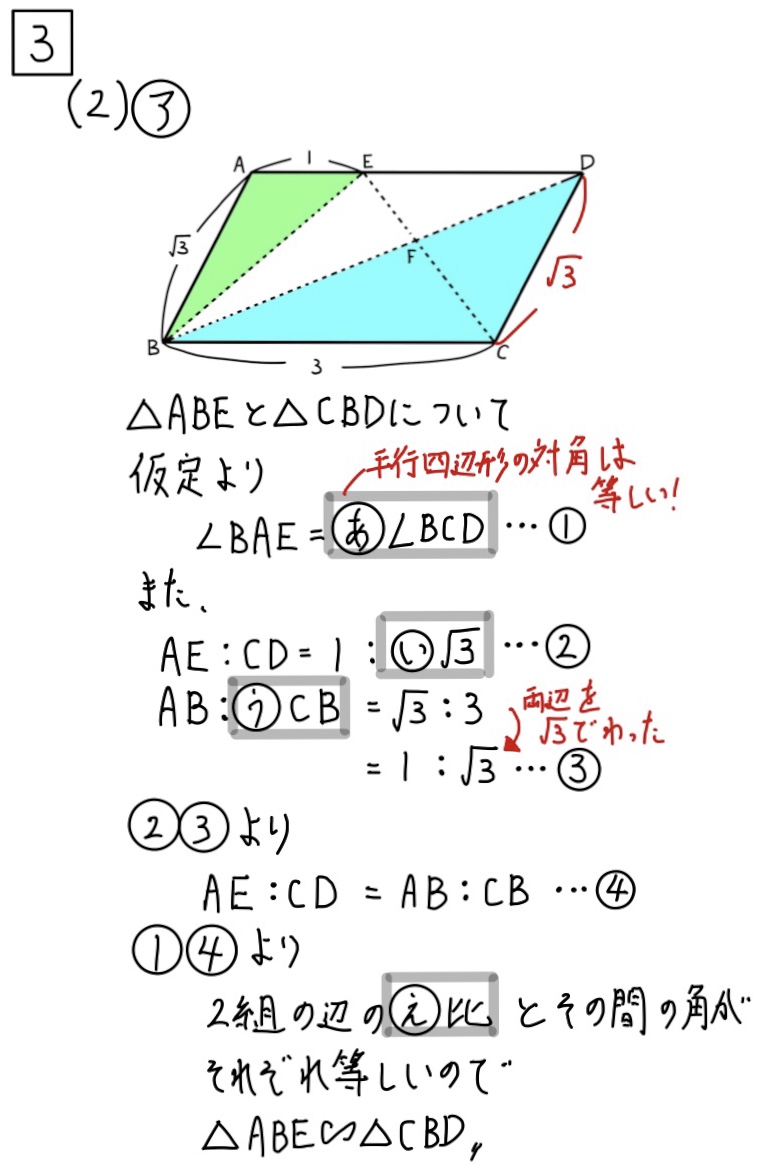 3
(2)ア
A 1 E D
√3
F
√3
B 3 C
△ABEと△CBDについて
仮定より
平行四辺形の対角は
等しい!
∠BAE=あ∠BCD…①
また、
AE:CD=1:い√3…②
AB:うCB=√3:3
両辺を
√3でわった
=1:√3…③
②③より
AE:CD=AB:CB…④
①④より
2組の辺のえ比とその間の角が
それぞれ等しいので
△ABE∽△CBD〃